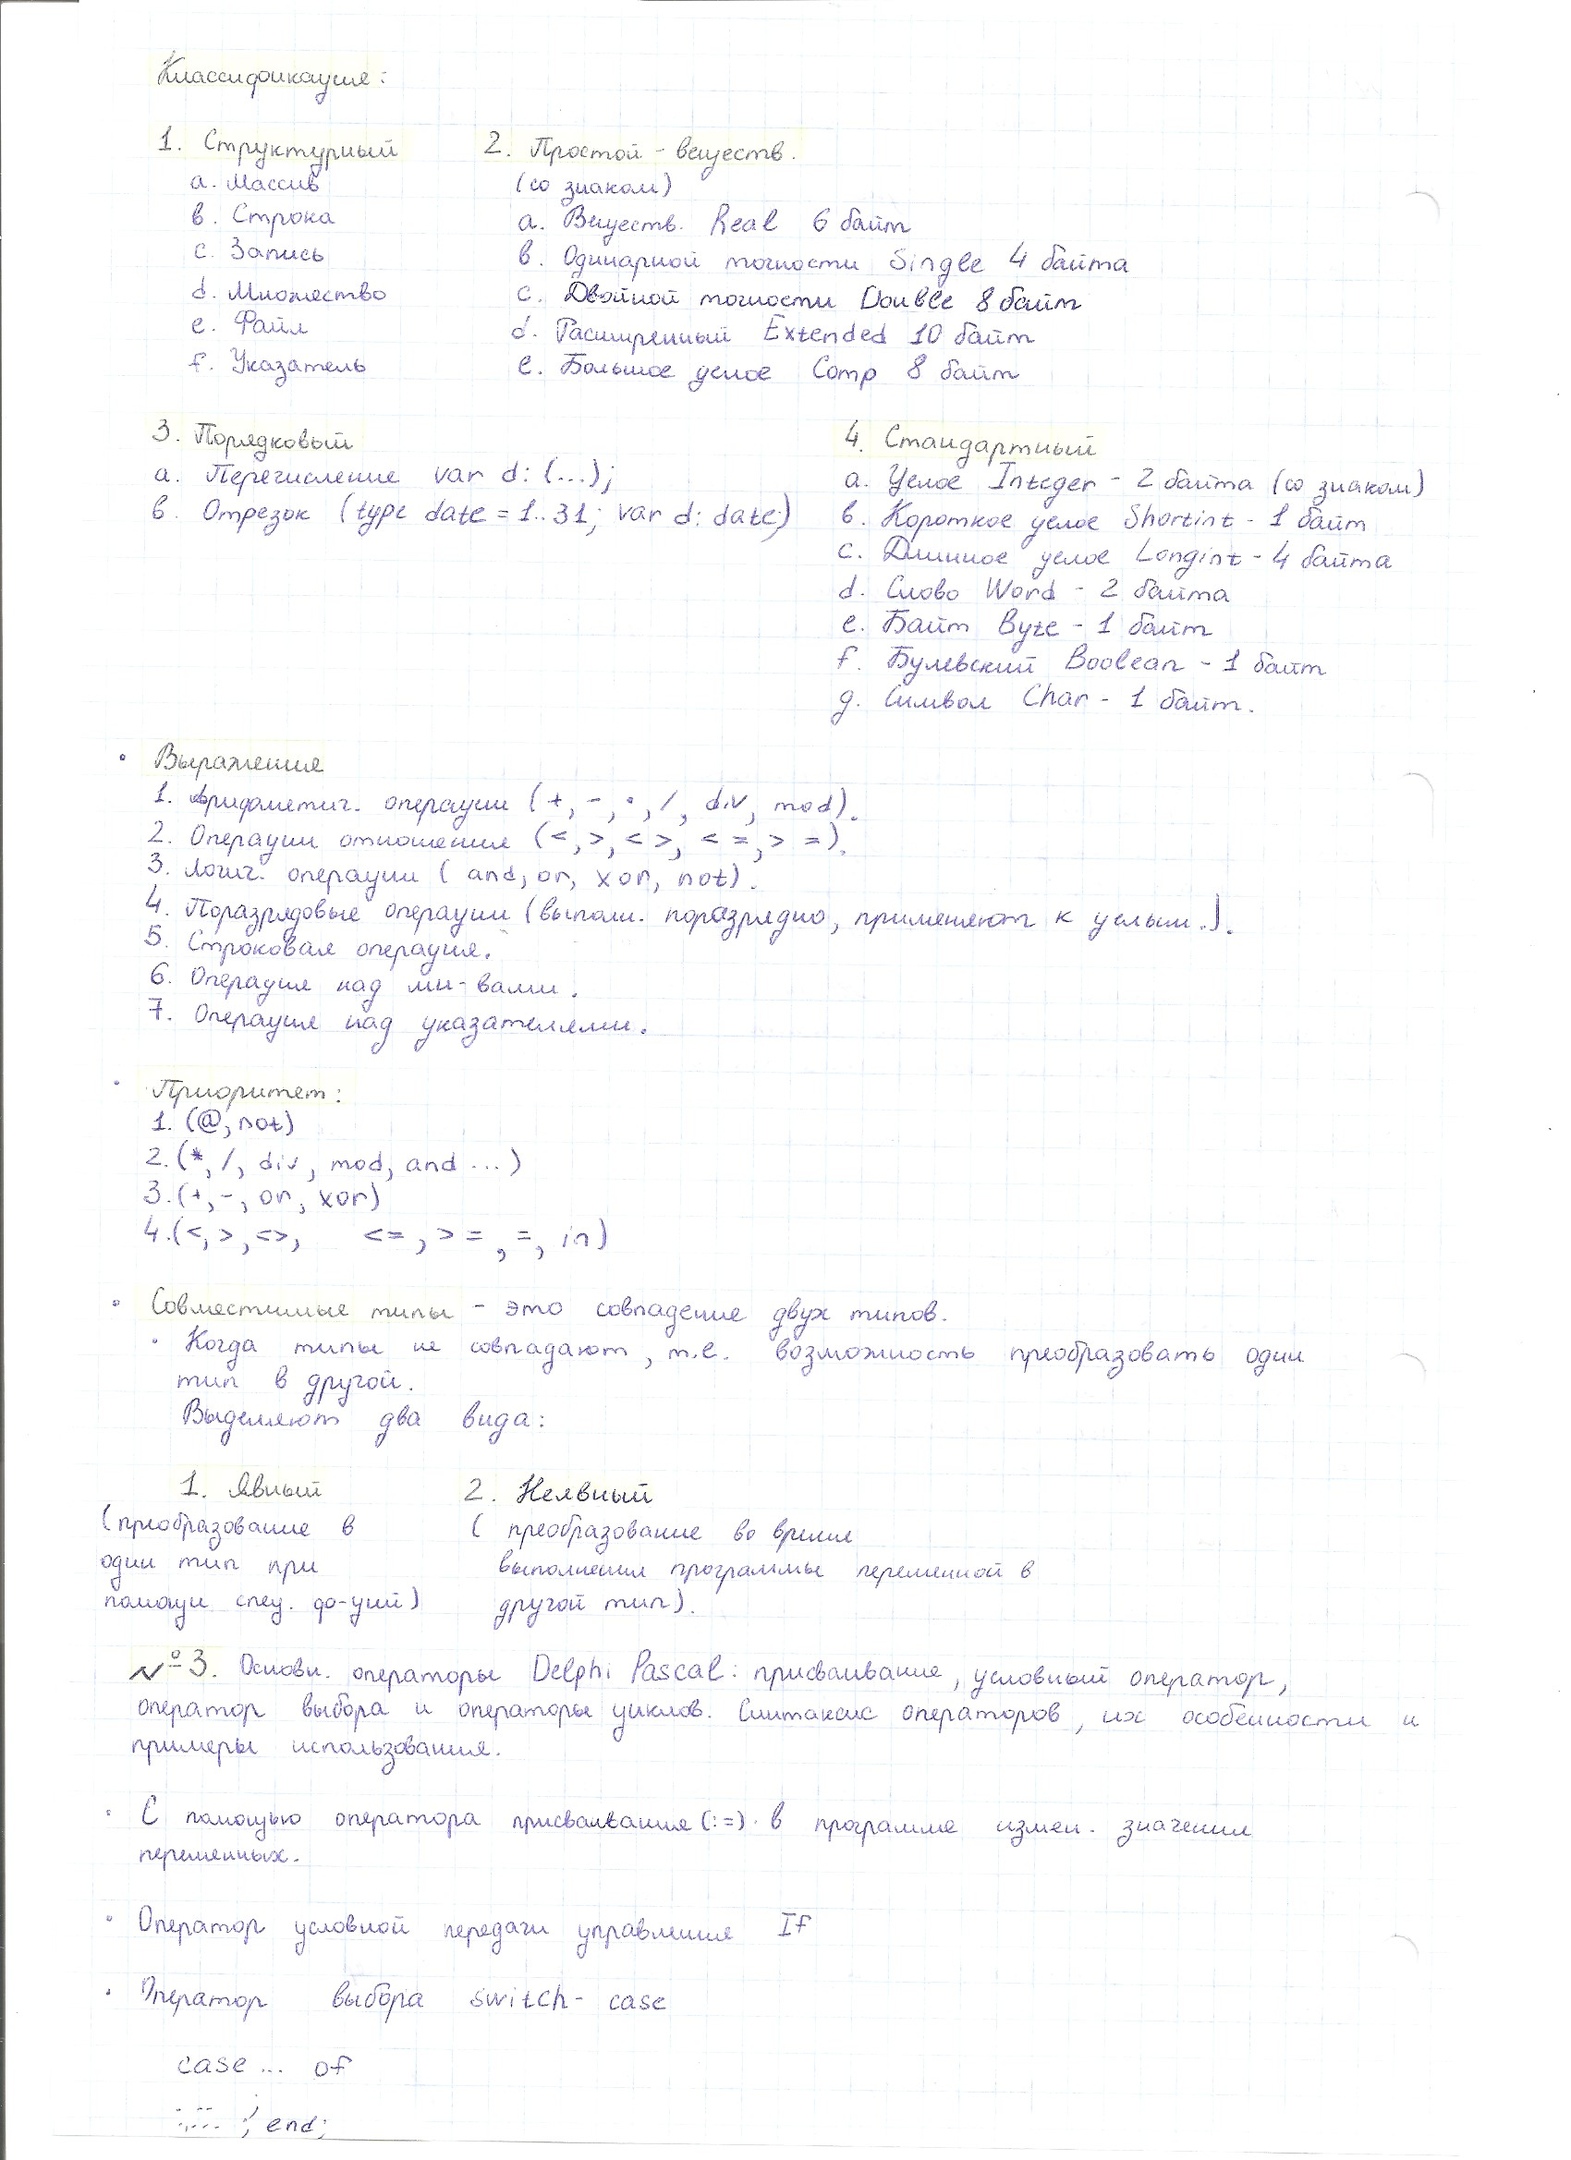 Классификация:
1. Структурный
a. Массив
b. Строка
c. Запись
d. Множество
e. Файл
f. Указатель
2. Простой - веществ.
(со знаком)
a. Веществ. Real 6 байт
b. Одинарной точности Single 4 байта
c. Двойной точности Double 8 байт
d. Расширенный Extended 10 байт
e. Большое целое Comp 8 байт
3. Порядковый
a. Перечисление var d: (...);
b. Отрезок (type date = 1..31; var d: date;)
4. Стандартный
a. Целое Integer - 2 байта (со знаком)
b. Короткое целое Shortint - 1 байт
c. Длинное целое Longint - 4 байта
d. Слово Word - 2 байта
e. Байт Byte - 1 байт
f. Булевский Boolean - 1 байт
g. Символ Char - 1 байт.
• Выражения
1. Арифметич. операции (+, -, •, /, div, mod).
2. Операции отношения (<, >, < >, < =, > =).
3. Логич. операции ( and, or, xor, not).
4. Поразрядовые операции (выполн. поразрядно, применяют к целым.).
5. Строковая операция.
6. Операция над мн-вами.
7. Операция над указателями.
• Приоритет:
1. (@, not)
2. (*, /, div, mod, and ...)
3. (+, -, or, xor)
4. (<, >, <>, <=, >=, =, in)
• Совместимые типы - это совпадение двух типов.
• Когда типы не совпадают, т.е. возможность преобразовать один
тип в другой.
Выделяют два вида:
1. Явный
(преобразование в
один тип при
помощи спец. ф-ций)
2. Неявный
( преобразование во время
выполнения программы переменной в
другой тип).
№3. Основн. операторы Delphi Pascal: присваивание, условный оператор,
оператор выбора и операторы циклов. Синтаксис операторов, их особенности и
примеры использования.
• С помощью оператора присваивания (:=) в программе измен. значения
переменных.
• Оператор условной передачи управления If
• Оператор выбора switch- case
case ... of
...... ; end;